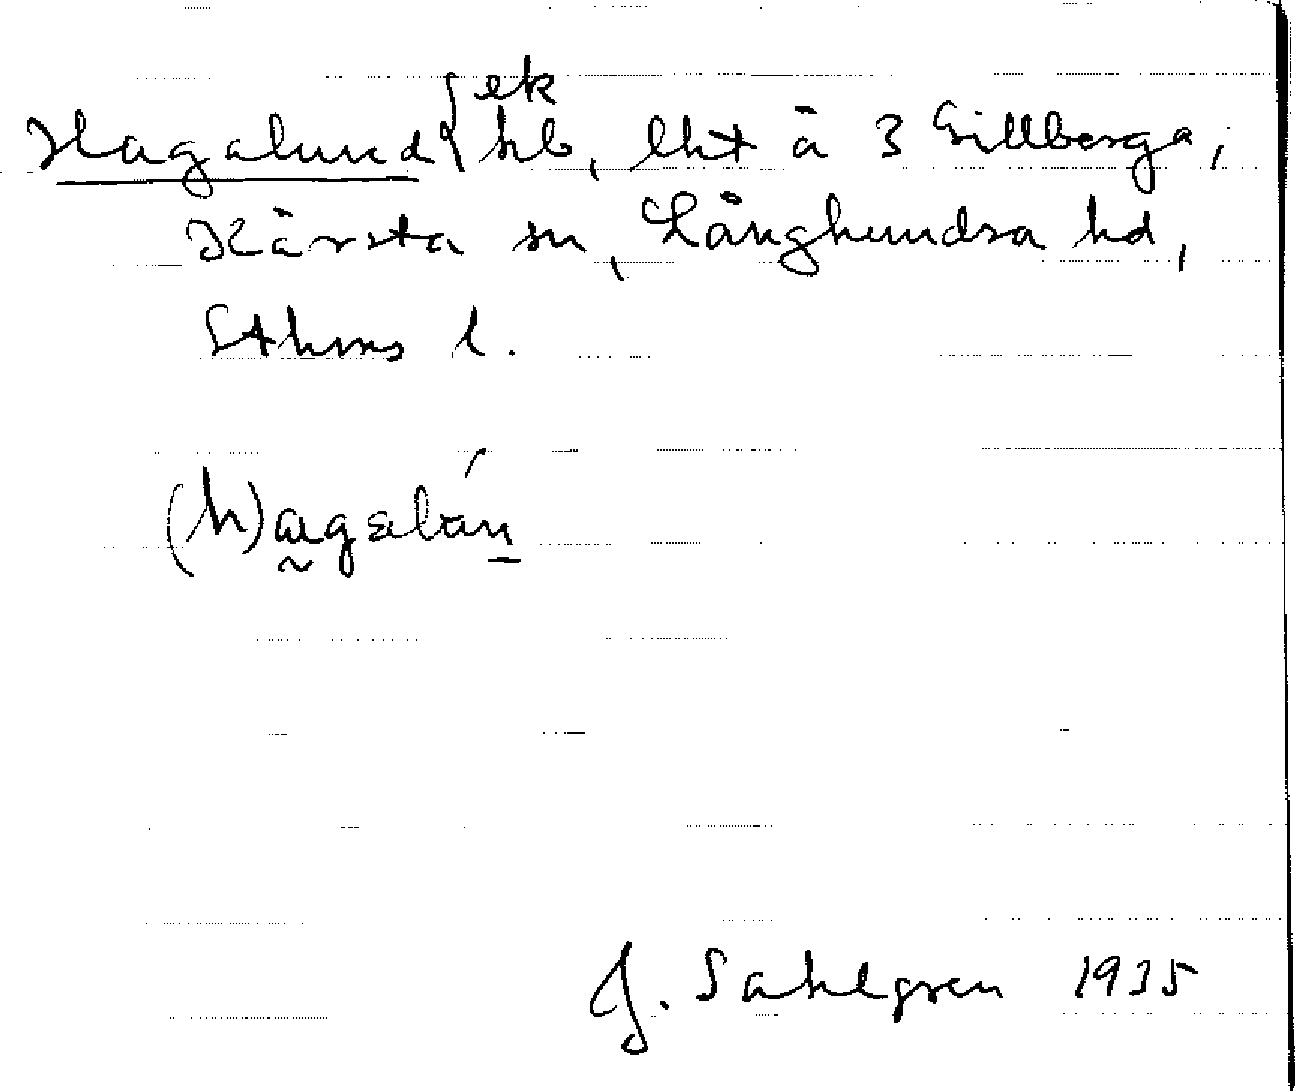 Hagalund { ek
hb, lht å 3 Gillberga,
Kårsta sn, Långhundra hd,
Sthms l.
(h)agalun
J. Sahlgren 1935